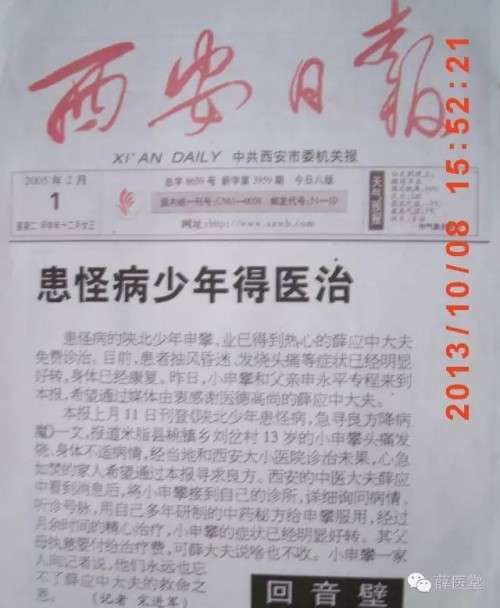 西安日报
XI'AN DAILY 中共西安市委机关报
2005年2月
1
总字8659号 新字第3959期 今日八版
天气预报
患怪病少年得医治
患怪病的陕北少年申攀,业已得到热心的薛应中大夫
免费诊治。目前,患者抽风昏迷、发烧头痛等症状已经明显
好转,身体已经康复。昨日,小申攀和父亲申永平专程来到
本报,希望通过媒体由衷感谢医德高尚的薛应中大夫。
本报上月11日刊登《陕北少年患怪病,急寻良方降病
魔》一文,报道米脂县桃镇乡刘岔村13岁的小申攀头痛发
烧、身体不适病情,经当地和西安大小医院诊治未果,心急
如焚的家人希望通过本报寻求良方。西安的中医大夫薛应
中看到消息后,将小申攀接到自己的诊所,详细询问病情、
听诊号脉,用自己多年研制的中药秘方给申攀服用,经过
月余时间的精心治疗,小申攀的症状已经明显好转。其父
母执意要付给治疗费,可薛大夫说啥也不收。小申攀一家
人向记者说,他们永远也忘
不了薛应中大夫的救命之
恩。
回音壁
2013/10/08 15:52:21
薛医堂